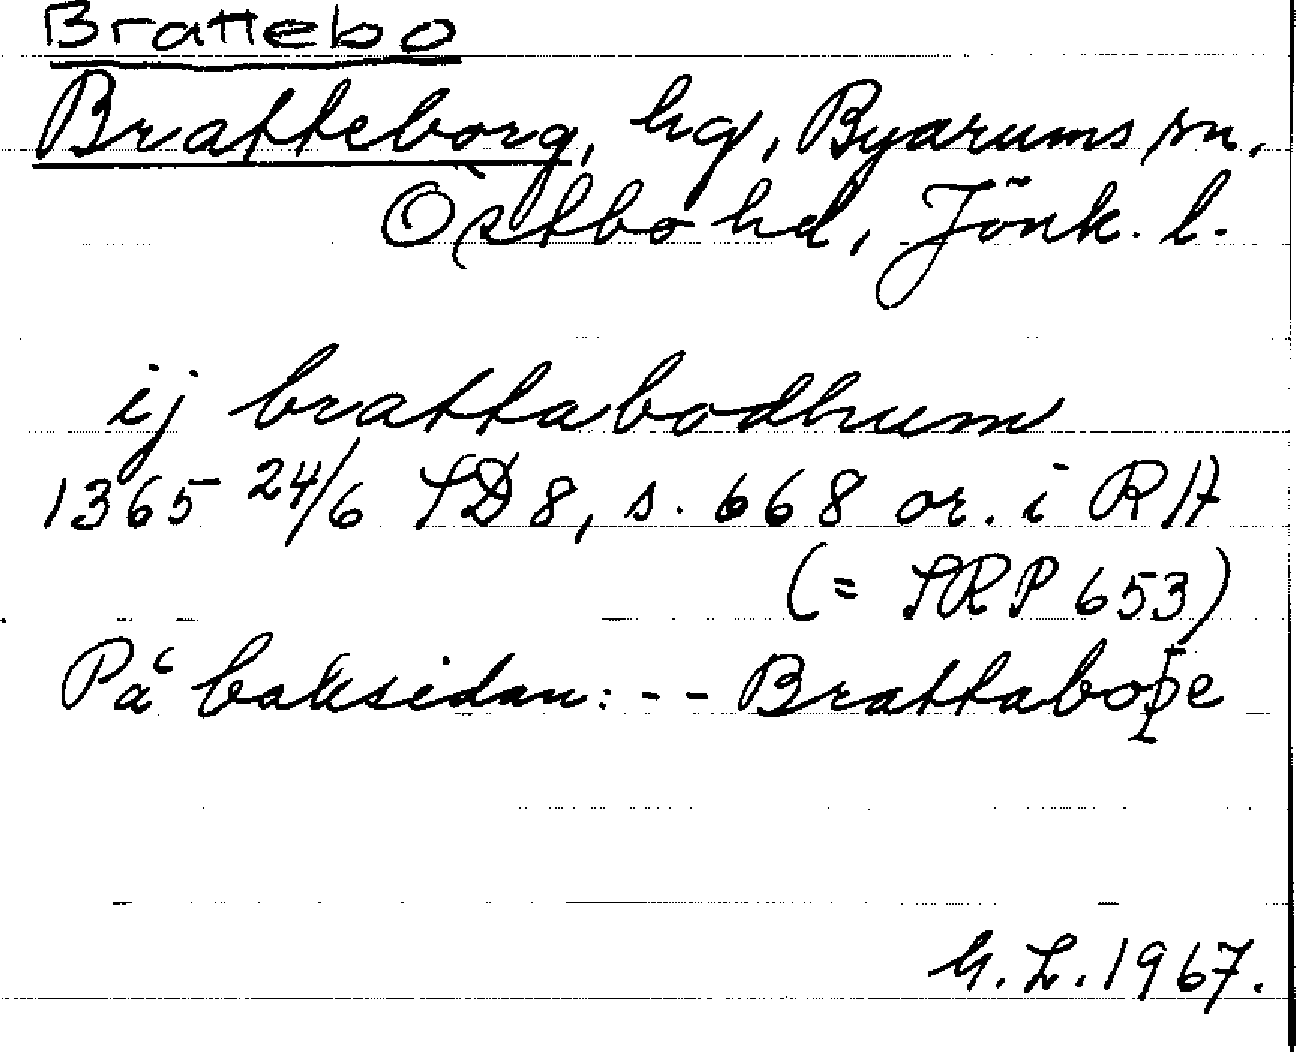 Brattebo
Bratteborg, hg, Byarums sn,
Östbo hd, Jönk. l.
ij brattabodhum
1365 24/6 SD 8, s. 668 or. i RA
(= SRP 653)
På baksidan: -- Brattaboþe
G. L. 1967.